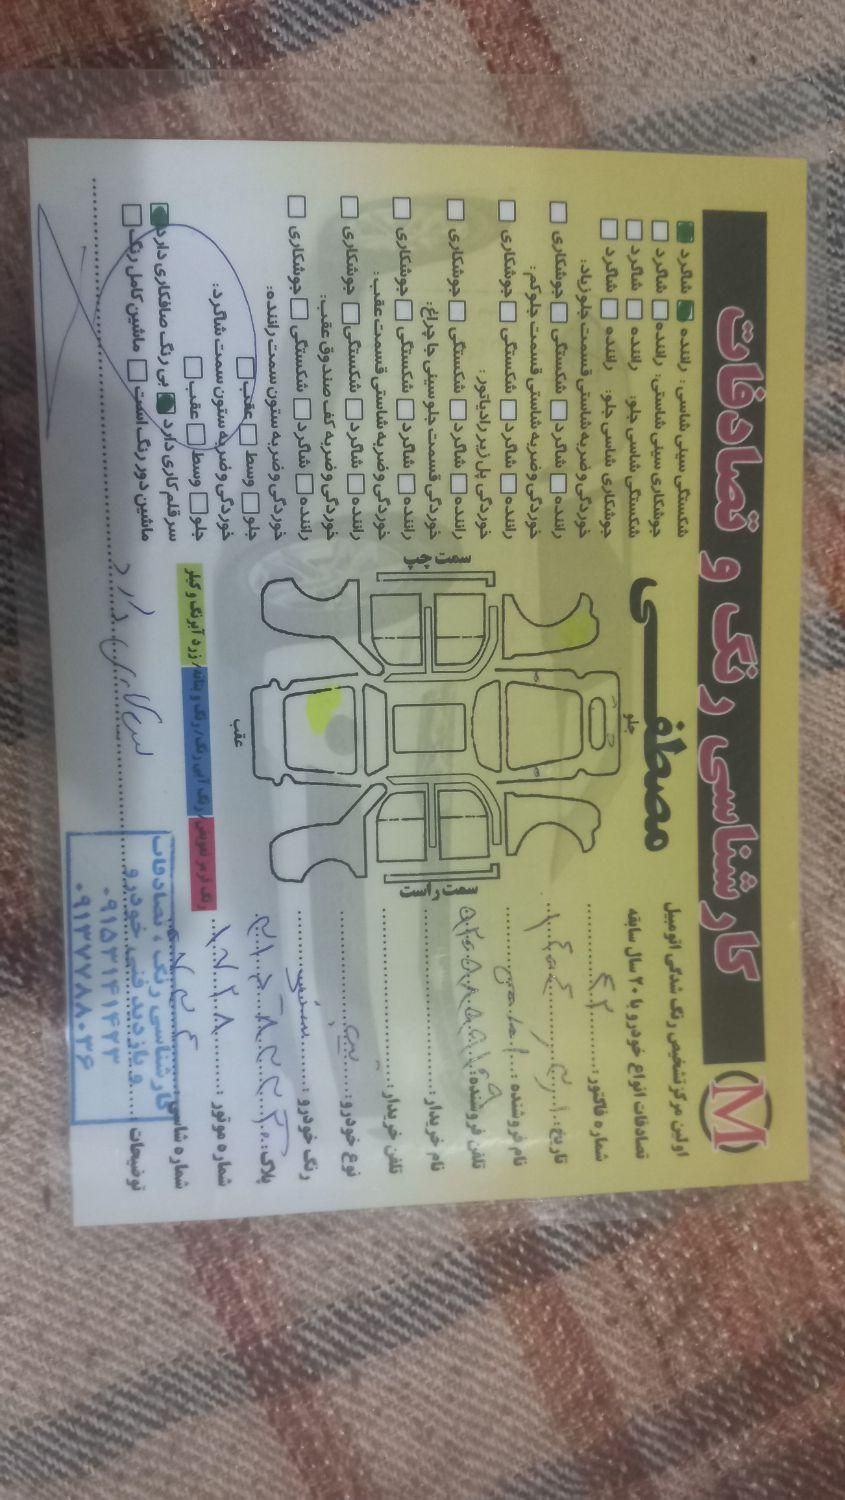 کارشناسی رنگ و تصادفات
M
مصطفی
اولین مرکز تشخیص رنگ شدگی اتومبیل
تصادفات انواع خودرو با ۲۰ سال سابقه
شماره فاکتور: ۶۲
تاریخ:
نام فروشنده:
تلفن فروشنده:
نام خریدار:
تلفن خریدار:
نوع خودرو:
رنگ خودرو: سفید
پلاک:
شماره موتور:
شماره شاسی:
توضیحات
جلو
سمت چپ
سمت راست
عقب
زرد آبرنگ و گیلر
رنگ آبی رنگ / رنگ و بتانه
رنگ قرمز تعویض
شکستگی سینی شاسی: راننده شاگرد
جوشکاری سینی شاسی: راننده شاگرد
شکستگی شاسی جلو: راننده شاگرد
جوشکاری شاسی جلو: راننده شاگرد
خوردگی و ضربه شاسی قسمت جلو زیاد:
راننده شاگرد شکستگی جوشکاری
خوردگی و ضربه شاستی قسمت جلو کم:
راننده شاگرد شکستگی جوشکاری
خوردگی پل زیر رادیاتور:
راننده شاگرد شکستگی جوشکاری
خوردگی قسمت جلو سینی جا چراغ:
راننده شاگرد شکستگی جوشکاری
خوردگی و ضربه شاستی قسمت عقب:
راننده شاگرد شکستگی جوشکاری
خوردگی و ضربه کف صندوق عقب:
راننده شاگرد شکستگی جوشکاری
خوردگی و ضربه ستون سمت راننده:
جلو وسط عقب
خوردگی و ضربه ستون سمت شاگرد:
جلو وسط عقب
سر قلم کاری دارد بی رنگ صافکاری دارد
ماشین دور رنگ است ماشین کامل رنگ
کارشناسی رنگ ، تصادفات
و بازدید فنی خودرو
۰۹۱۵۳۱۴۱۴۲۳
۰۹۱۳۷۷۸۸۰۳۶